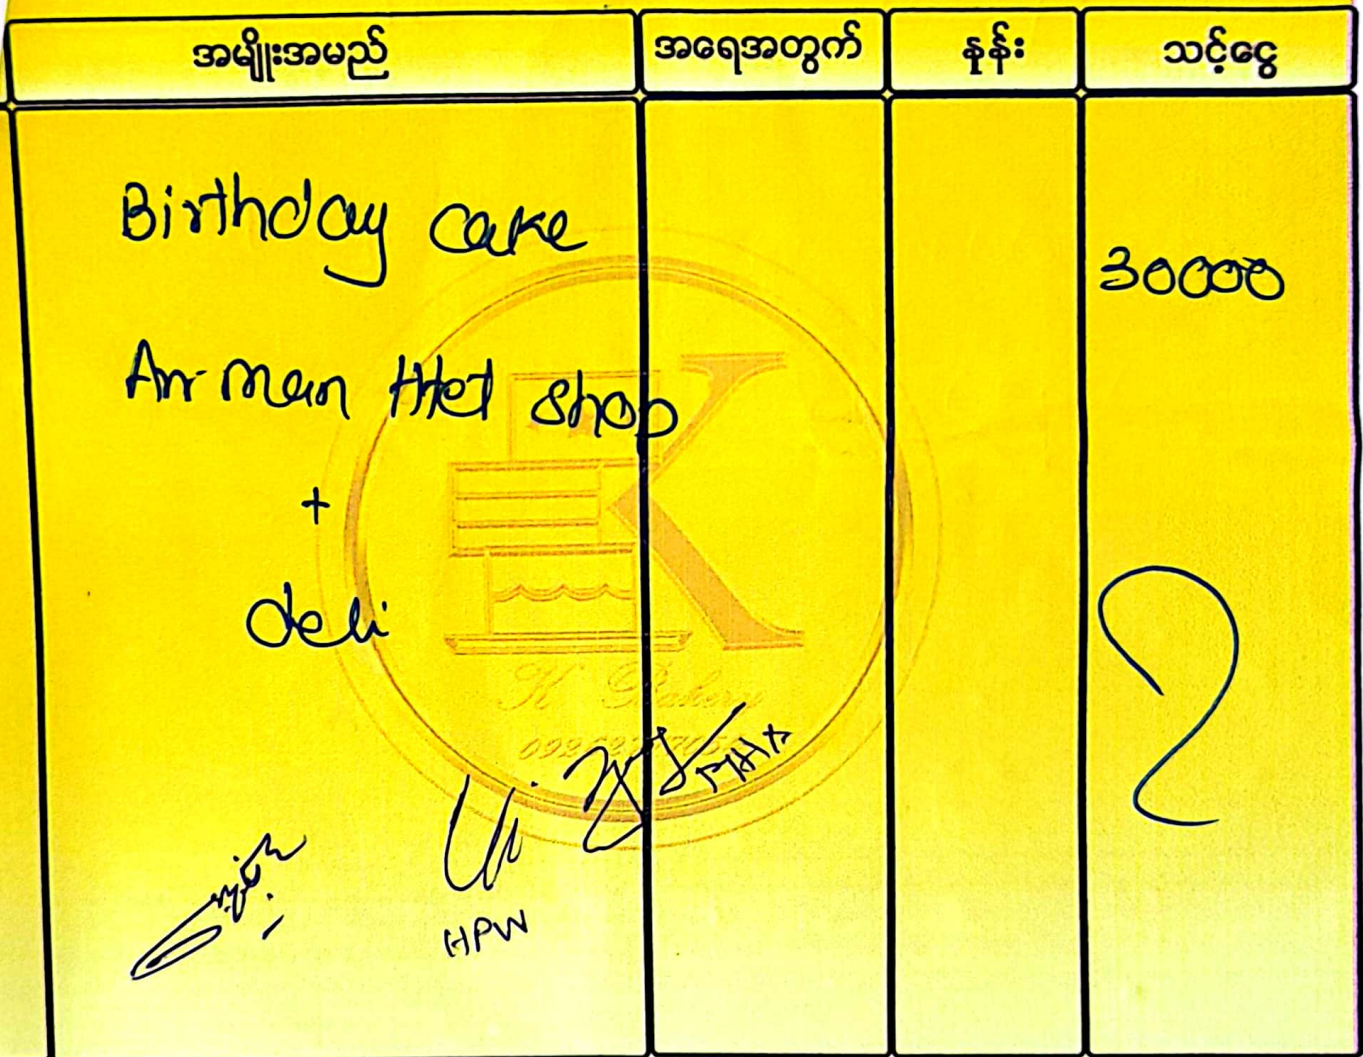 အမျိုးအမည် အရေအတွက် နှုန်း သင့်ငွေ
Birthday cake
30000
Arr man Htet shop
+
deli
K Bakery
HPW